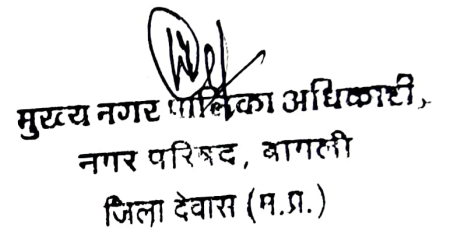 मुख्य नगर पालिका अधिकारी,
नगर परिषद, बागली
जिला देवास (म.प्र.)